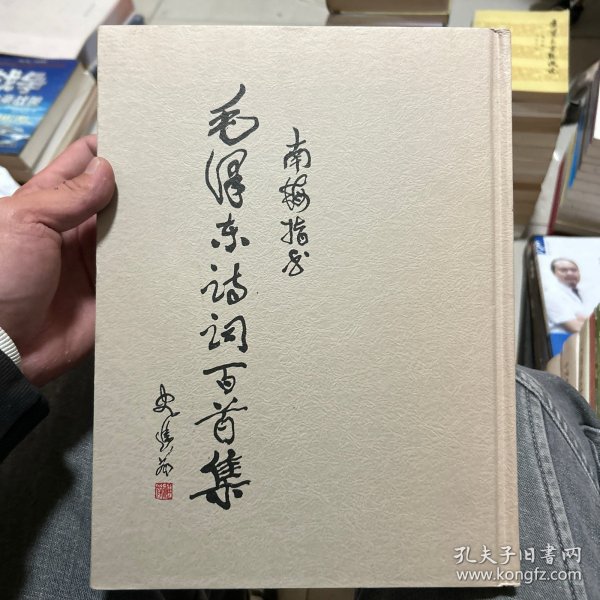 南梅指书
毛泽东诗词百首集
孔夫子旧书网
www.kongfz.com